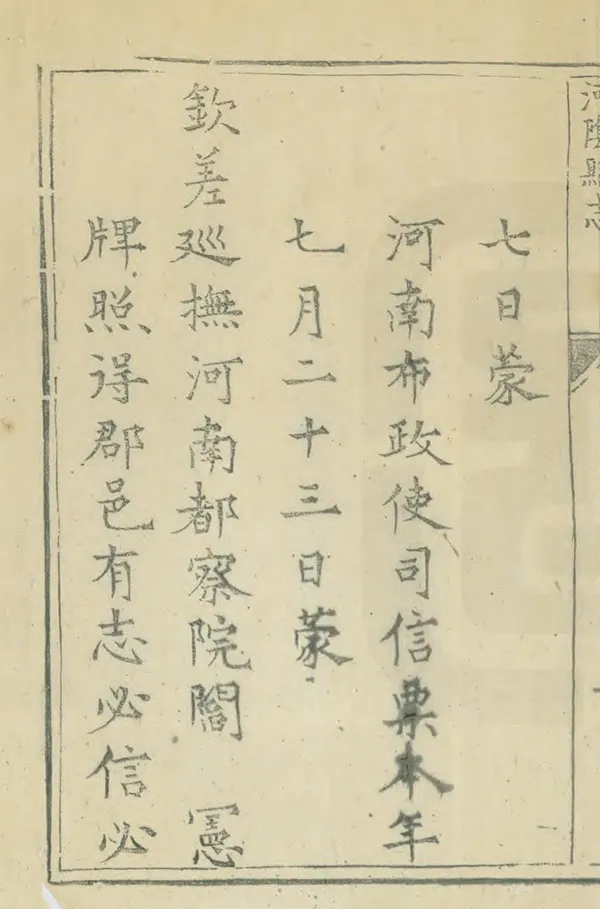 河陰縣志
七日蒙
河南布政使司信票本年
七月二十三日蒙
欽差巡撫河南都察院閻 憲
牌照得郡邑有志必信必